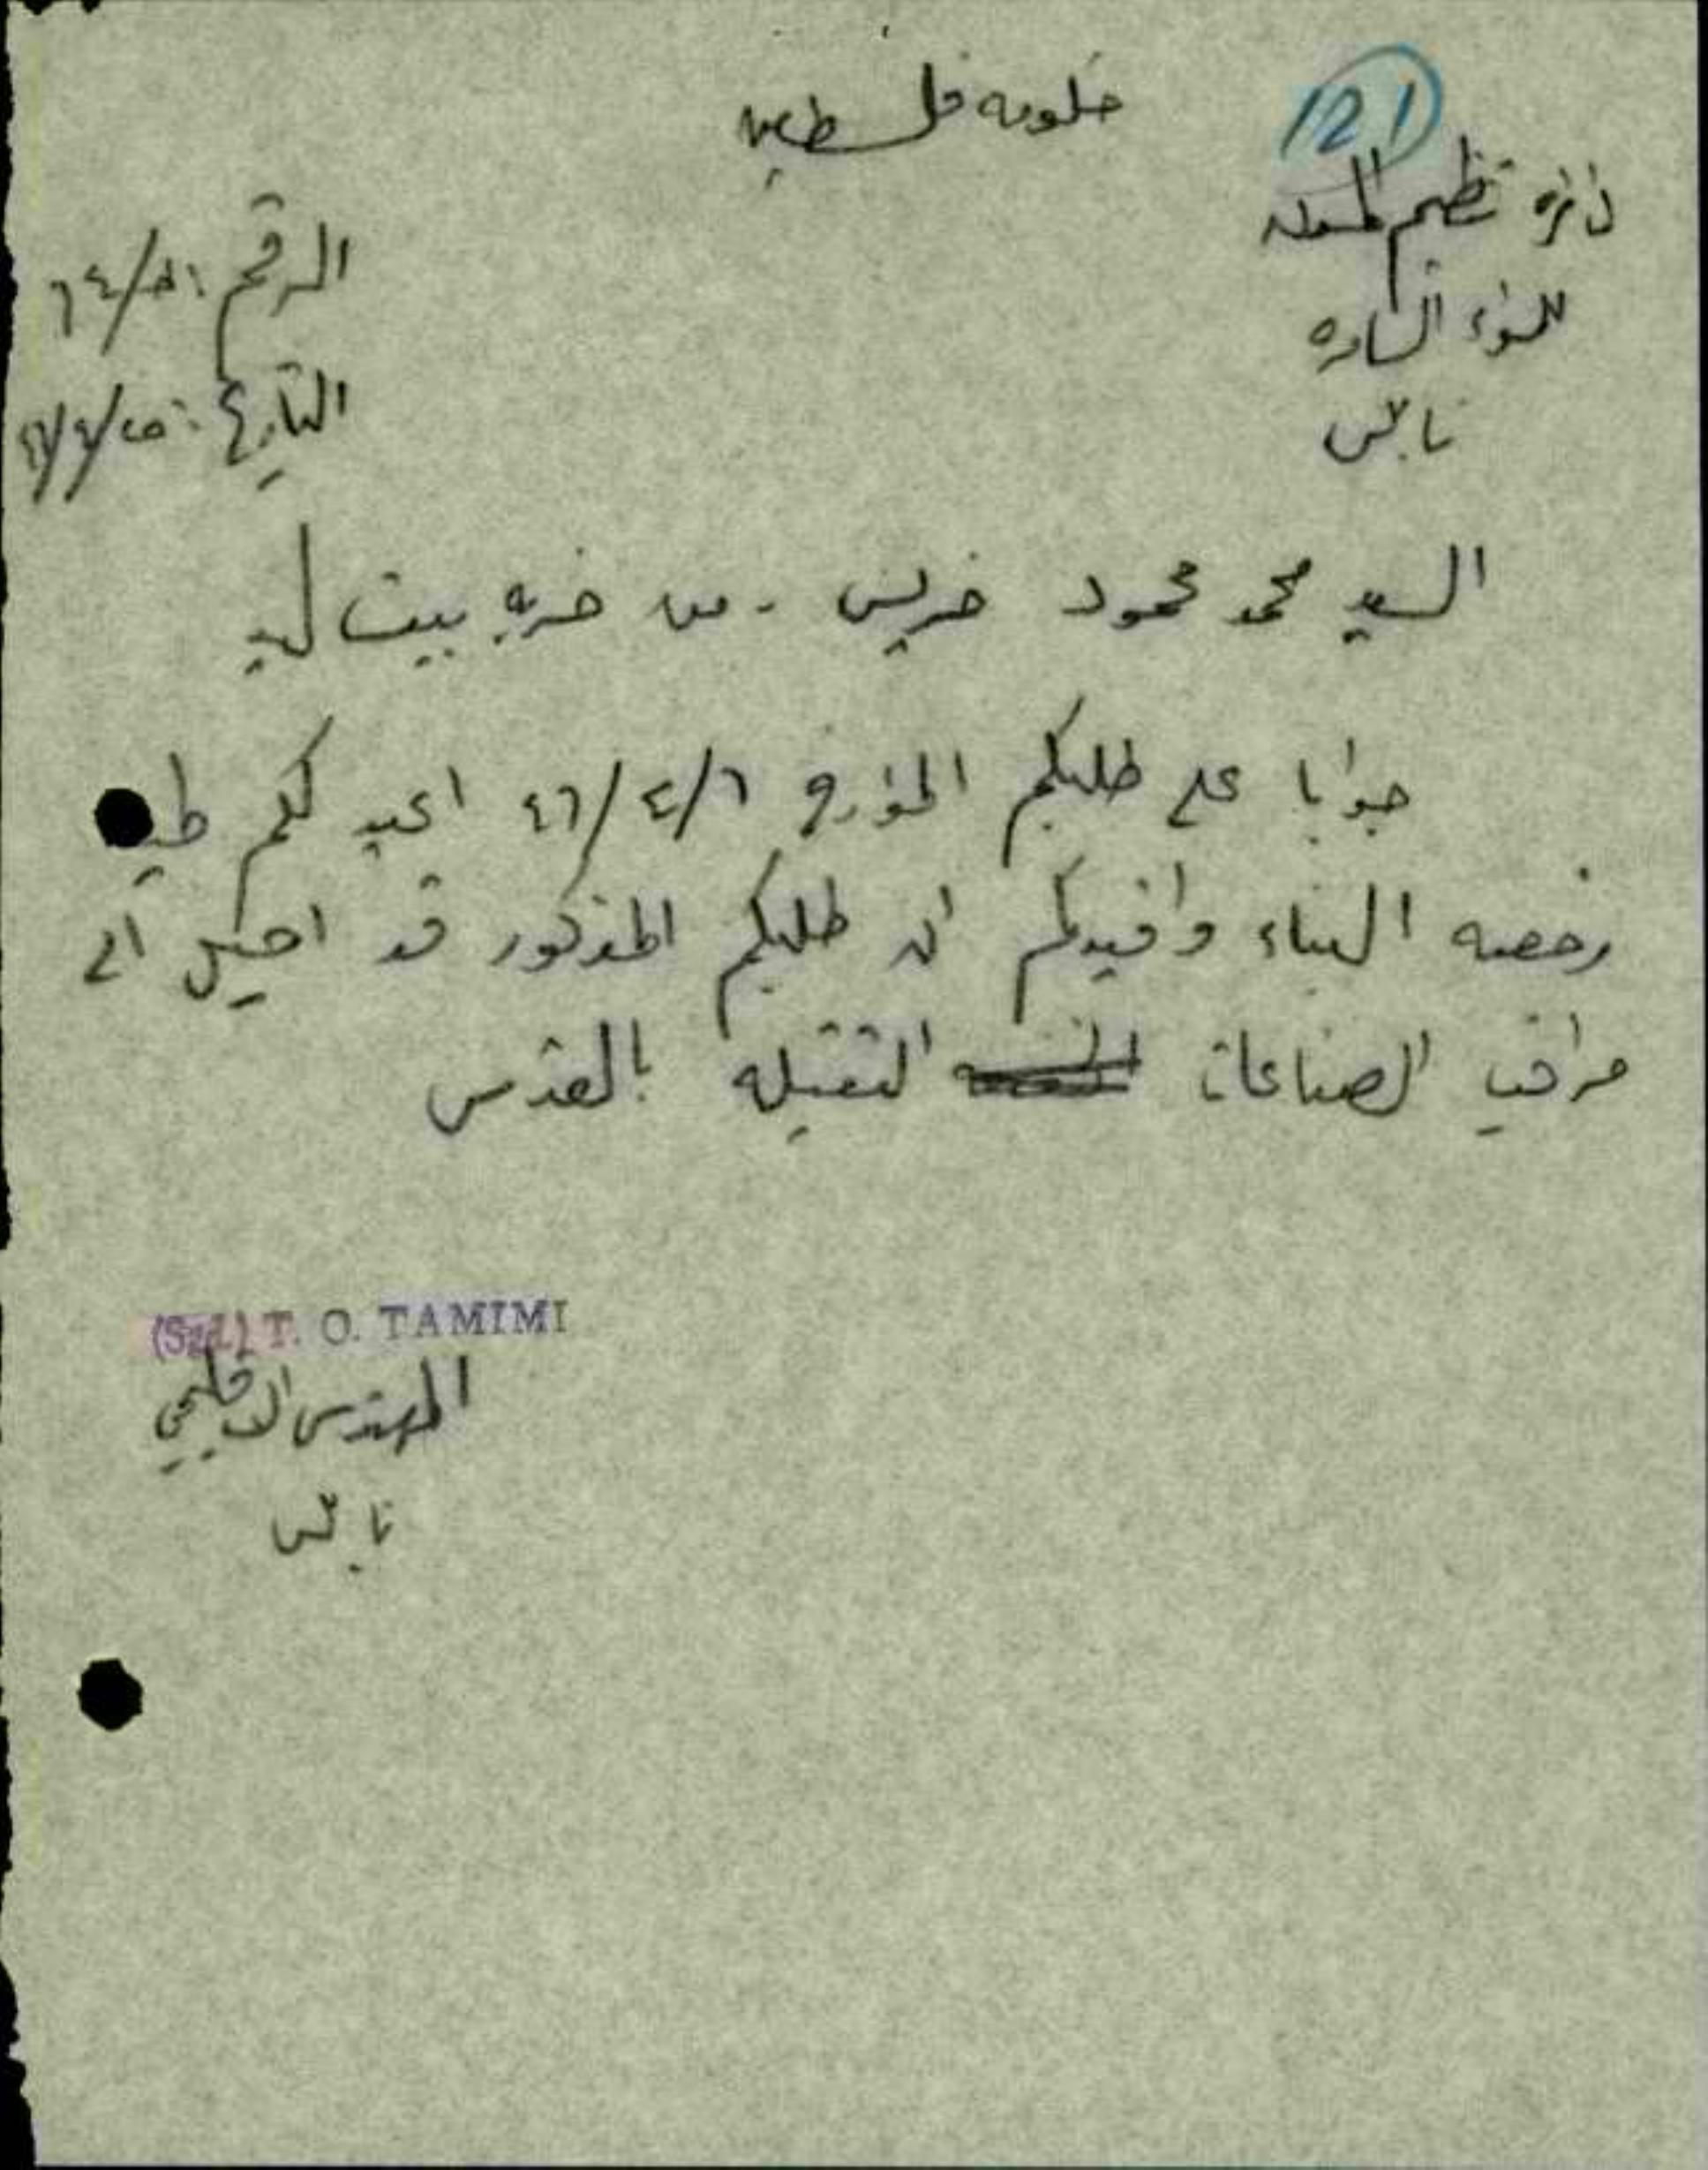 121
حكومة فلسطين
دائرة تنظيم المدن
للواء السامره
نابلس
الرقم : ٦٤/٥
التاريخ : ٢٥/٤/٤٦
السيد محمد محمود خريس - من خربة بيت ليد
جوابا على طلبكم المؤرخ ٤٦/٤/٦ اعيد لكم طيه
رخصة البناء وافيدكم ان طلبكم المذكور قد احيل الى
مراقب الصناعات الثقيله بالقدس
(Sgd.) T. O. TAMIMI
المهندس الاقليمي
نابلس